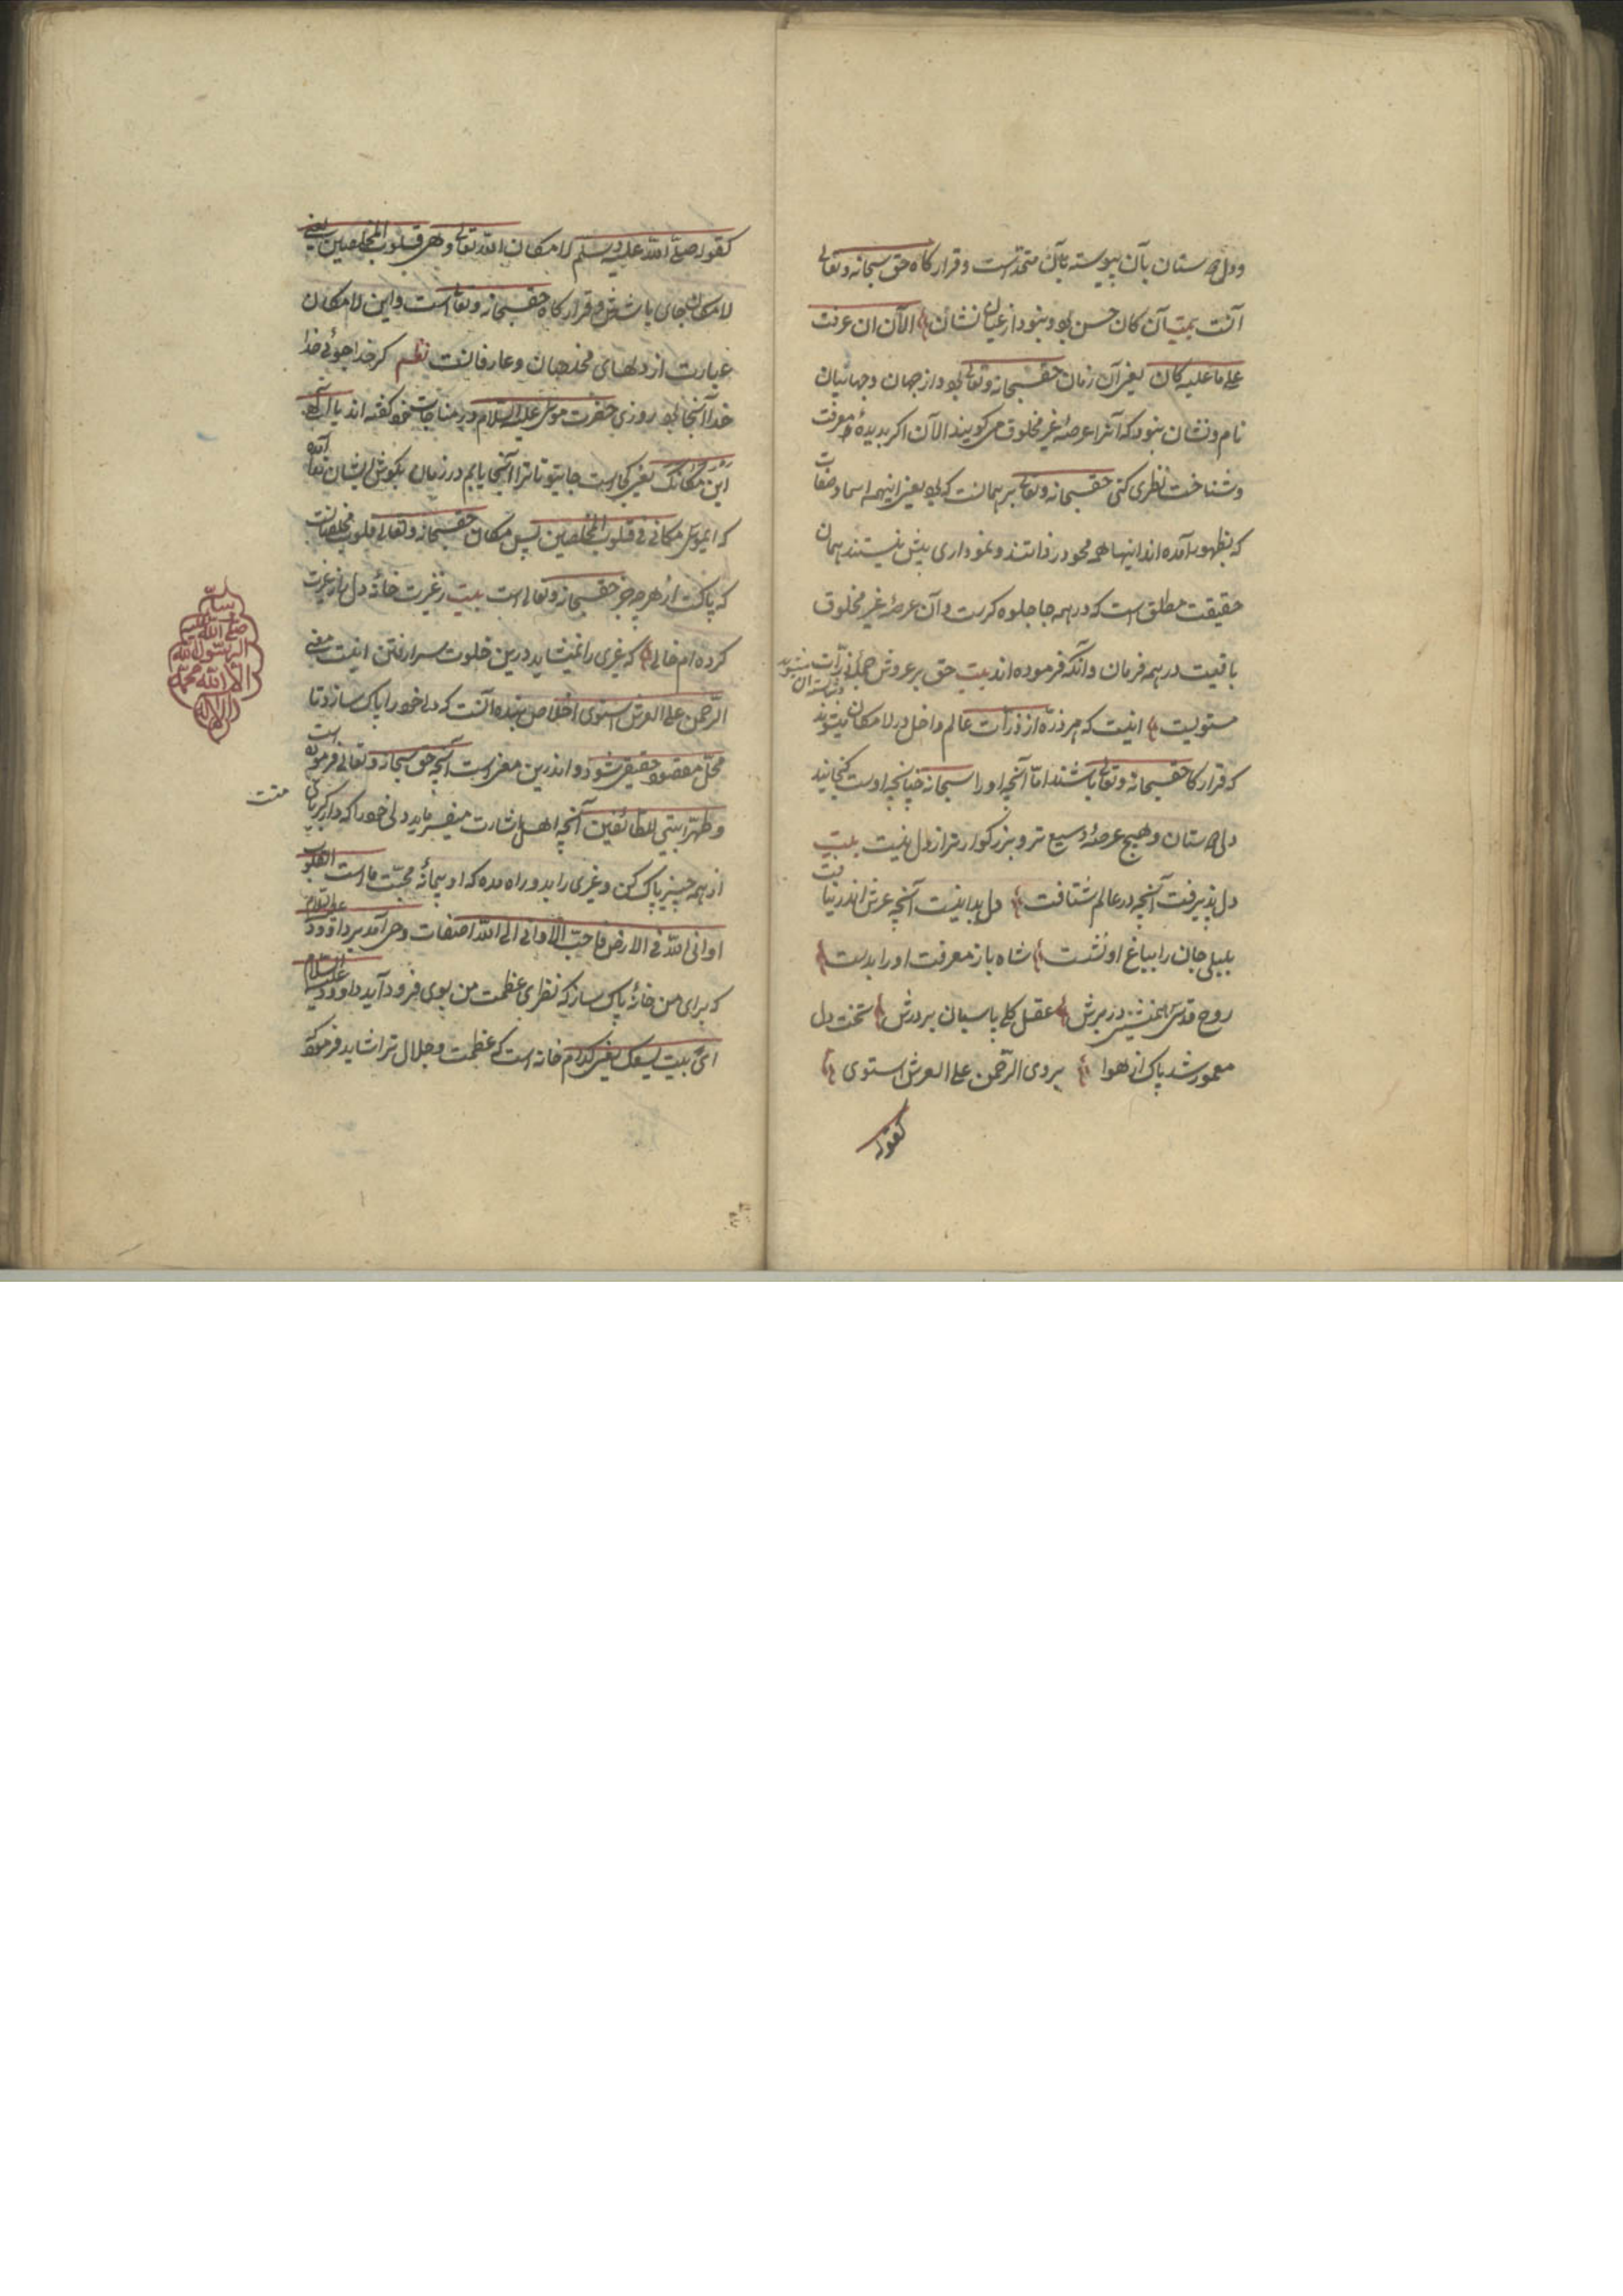 ودل دوستان بآن پیوسته بآن متحدست و قرارکاه حق سبحانه وتعالی
آنست بیت آن کان حسن بود و نبود از عیان نشان الآن ان عرفت
علی ما علیه کان یعنی آن زمان حقسبحانه وتعالی بود و از جهان وجهانیان
نام ونشان نبود که آنرا عرصۀ غیر مخلوق میکویند الآن اکر بدیدۀ معرفت
وشناخت نظری کنی حقسبحانه وتعالی برهمانست که بود یعنی اینهمه اسما وصفات
که بظهور آمده اند اینها همه محو در ذاتند و نموداری بیش نیستند همان
حقیقت مطلق است که در همه جا جلوه کرست و آن عرصۀ غیر مخلوق
باقیست در همه فرمان وآنکه فرموده اند بیت حق بر عروش جملۀ ذرات
مستویست اینست که هر ذره از ذرات عالم داخل در لامکان میشوند
که قرارکاه حقسبحانه وتعالی باشند اما آنچه او را سبحانه چنانچه اوست کنجانید
دل دوستان و هیچ عرصۀ وسیع تر و بزرکوارتر از دل نیست بیت
دل پذیرفت آنچه در عالم شتافت دل بدانیست آنچه عرش اندر نیافت
بلبلی جان را بباغ او نشست شاه باز معرفت او را بدست
روح قدسی همنشین در برش عقل کلی پاسبان بر درش تخت دل
معمور شد پاک از هوا بر وی الرحمن علی العرش استوی
کقوله
کقوله صلی الله علیه وسلم لامکان الله تعالی وهی قلوب المخلصین یعنی
لامکان جای باشش و قرارکاه حقسبحانه وتعالی است واین لامکان
عبارت از دلهای مخلصان وعارفانست نظم کر خدا جوئی خدا
خدا آنجا بود روزی حضرت موسی علیه السلام در مناجات خود کفته اند یا الهی
این مکانک یعنی کجاست جای تو تا ترا آنجا یابم در زمان بکوش ایشان ندا آمده
که ای موسی مکانی فی قلوب المخلصین پس مکان حقسبحانه وتعالی قلوب مخلصانست
که پاکست از هر چه جز حقسبحانه وتعالی است بیت ز غیرت خانه دل را ز غیرت
کرده ام خالی که غیری را نمیشاید درین خلوت سرا رفتن اینست معنی
الرحمن علی العرش استوی اخلاص بنده آنست که دل خود را پاک سازد تا
محل مقصود حقیقی شود و اندرین معنی است آنچه حق سبحانه وتعالی فرموده است
وطهرا بیتی للطائفین آنچه اهل اشارت میفرماید دلی خود را که دار کبریای منست
از همه چیز پاک کن و غیری را بدو راه مده که او پیمانۀ محبت ما است القلوب
اوانی الله فی الارض فاحب الاوانی الی الله اصفات وحی آمد بر داوود علیه السلام
که برای من خانۀ پاک ساز که نظری عظمت من بوی فرود آید داوود علیه السلام
ای بیت یسعک یعنی کدام خانه است که عظمت وجلال ترا شاید فرمود که
لا اله
الا الله محمد
الرسول الله
صلی الله علیه
وسلم